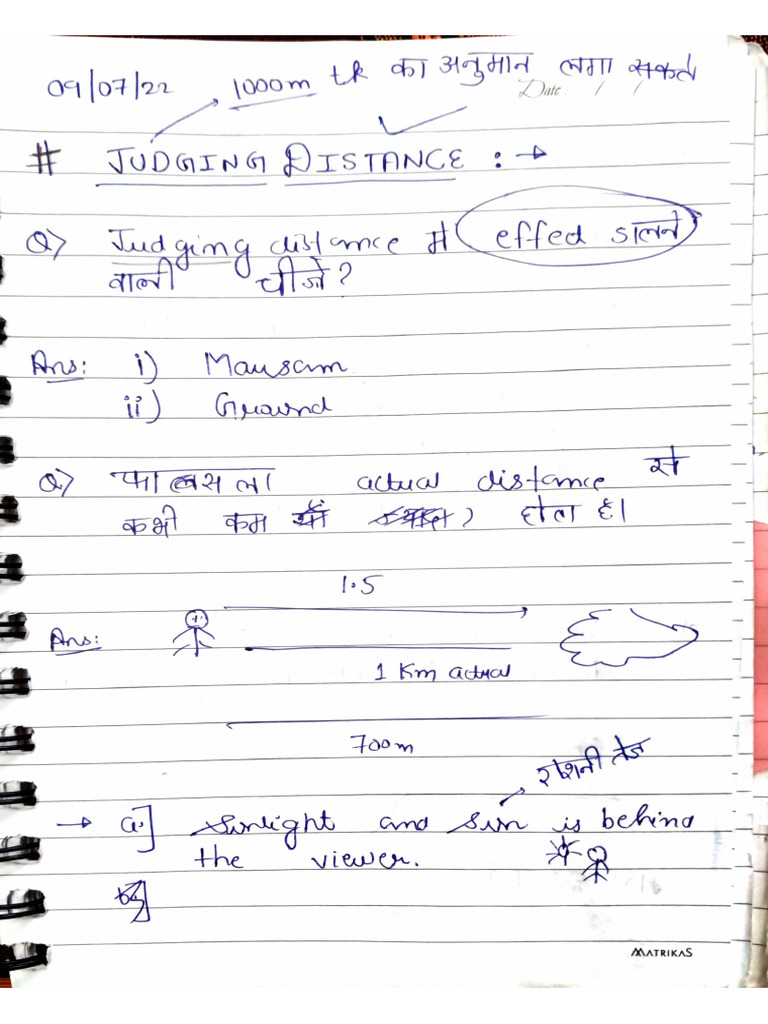 09/07/22 1000m tk का अनुमान लगा सकते
Date : / /
# JUDGING DISTANCE :→
Q> Judging distance में effed डालने
वाली चीजें?
Ans: i) Mausam
ii) Ground
Q.> फालसला actual distance से
कभी कम होता है।
1.5
Ans:
1 Km actual
700m
रोशनी तेज
→ a.] Sunlight and Sun is behind
the viewer.
MATRIKAS